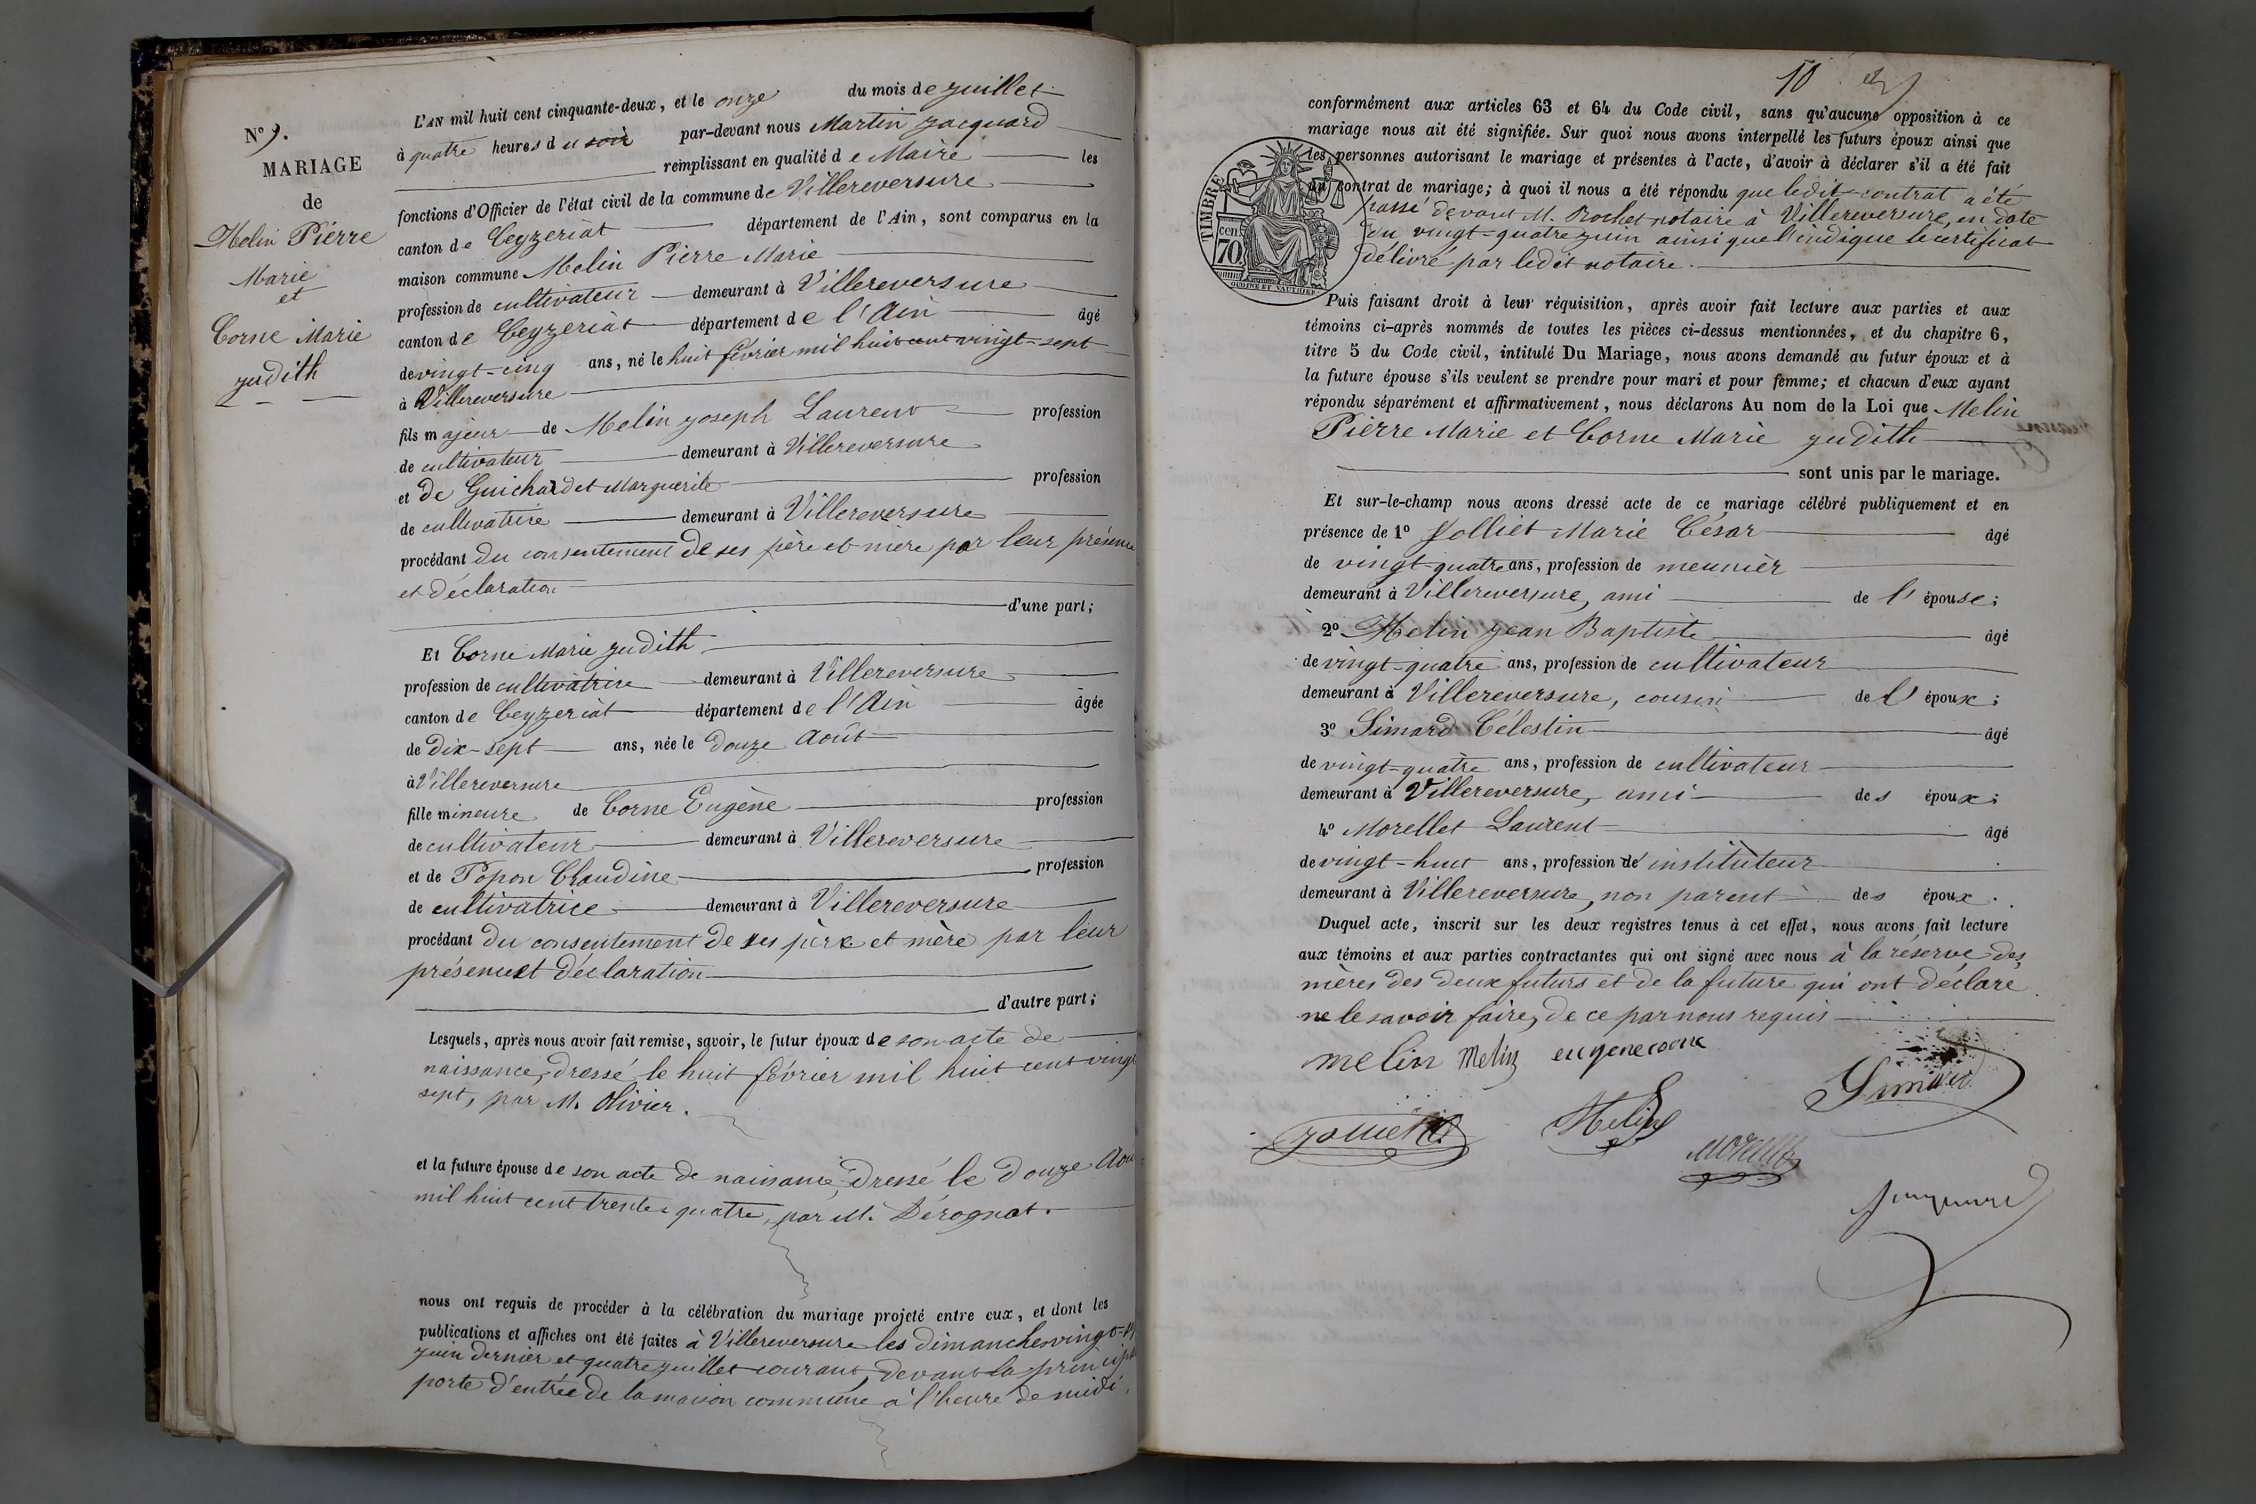 N° 9.
MARIAGE
de
Melin Pierre
Marie
et
Corne Marie
Judith
L'AN mil huit cent cinquante-deux, et le onze du mois de juillet
à quatre heures du soir par-devant nous Martin Jacquard
remplissant en qualité de Maire les
fonctions d'Officier de l'état civil de la commune de Villereversure
canton de Ceyzeriat département de l'Ain, sont comparus en la
maison commune Melin Pierre Marie
profession de cultivateur demeurant à Villereversure
canton de Ceyzeriat département de l'Ain âgé
de vingt-cinq ans, né le huit février mil huit cent vingt-sept
à Villereversure
fils majeur de Melin Joseph Laurent profession
de cultivateur demeurant à Villereversure
et de Guichardet Marguerite profession
de cultivatrice demeurant à Villereversure
procédant du consentement de ses père et mère par leur présence
et déclaration
d'une part;
Et Corne Marie Judith
profession de cultivatrice demeurant à Villereversure
canton de Ceyzeriat département de l'Ain âgée
de dix-sept ans, née le douze Août
à Villereversure
fille mineure de Corne Eugène profession
de cultivateur demeurant à Villereversure
et de Popon Claudine profession
de cultivatrice demeurant à Villereversure
procédant du consentement de ses père et mère par leur
présence et déclaration
d'autre part;
Lesquels, après nous avoir fait remise, savoir, le futur époux de son acte de
naissance, dressé le huit février mil huit cent vingt
sept, par M. Olivier.
et la future épouse de son acte de naissance, dressé le douze Aou
mil huit cent trente-quatre, par M. Dérognat.
nous ont requis de procéder à la célébration du mariage projeté entre eux, et dont les
publications et affiches ont été faites à Villereversure les dimanches vingt-
juin dernier et quatre juillet courant, devant la princip
porte d'entrée de la maison commune à l'heure de midi.
10
conformément aux articles 63 et 64 du Code civil, sans qu'aucune opposition à ce
mariage nous ait été signifiée. Sur quoi nous avons interpellé les futurs époux ainsi que
les personnes autorisant le mariage et présentes à l'acte, d'avoir à déclarer s'il a été fait
du contrat de mariage; à quoi il nous a été répondu que ledit contrat a été
passé devant M. Rochet notaire à Villereversure, en date
du vingt-quatre juin ainsi que l'indique le certificat
délivré par ledit notaire.
TIMBRE
70 cen
OUDINÉ ET VAUTHIER
Puis faisant droit à leur réquisition, après avoir fait lecture aux parties et aux
témoins ci-après nommés de toutes les pièces ci-dessus mentionnées, et du chapitre 6,
titre 5 du Code civil, intitulé Du Mariage, nous avons demandé au futur époux et à
la future épouse s'ils veulent se prendre pour mari et pour femme; et chacun d'eux ayant
répondu séparément et affirmativement, nous déclarons Au nom de la Loi que Melin
Pierre Marie et Corne Marie Judith
sont unis par le mariage.
Et sur-le-champ nous avons dressé acte de ce mariage célébré publiquement et en
présence de 1° Jolliet Marie César âgé
de vingt quatre ans, profession de meunier
demeurant à Villereversure, ami de l'épouse;
2° Melin Jean Baptiste âgé
de vingt-quatre ans, profession de cultivateur
demeurant à Villereversure, cousin de l'époux;
3° Simard Célestin âgé
de vingt-quatre ans, profession de cultivateur
demeurant à Villereversure, ami des époux;
4° Morellet Laurent âgé
de vingt-huit ans, profession de instituteur
demeurant à Villereversure, non parent des époux.
Duquel acte, inscrit sur les deux registres tenus à cet effet, nous avons fait lecture
aux témoins et aux parties contractantes qui ont signé avec nous à la réserve des
mères des deux futurs et de la future qui ont déclaré
ne le savoir faire, de ce par nous requis
melin Melin eugene corne
Simard
Jolliet
Melin
Morellet
Jacquard